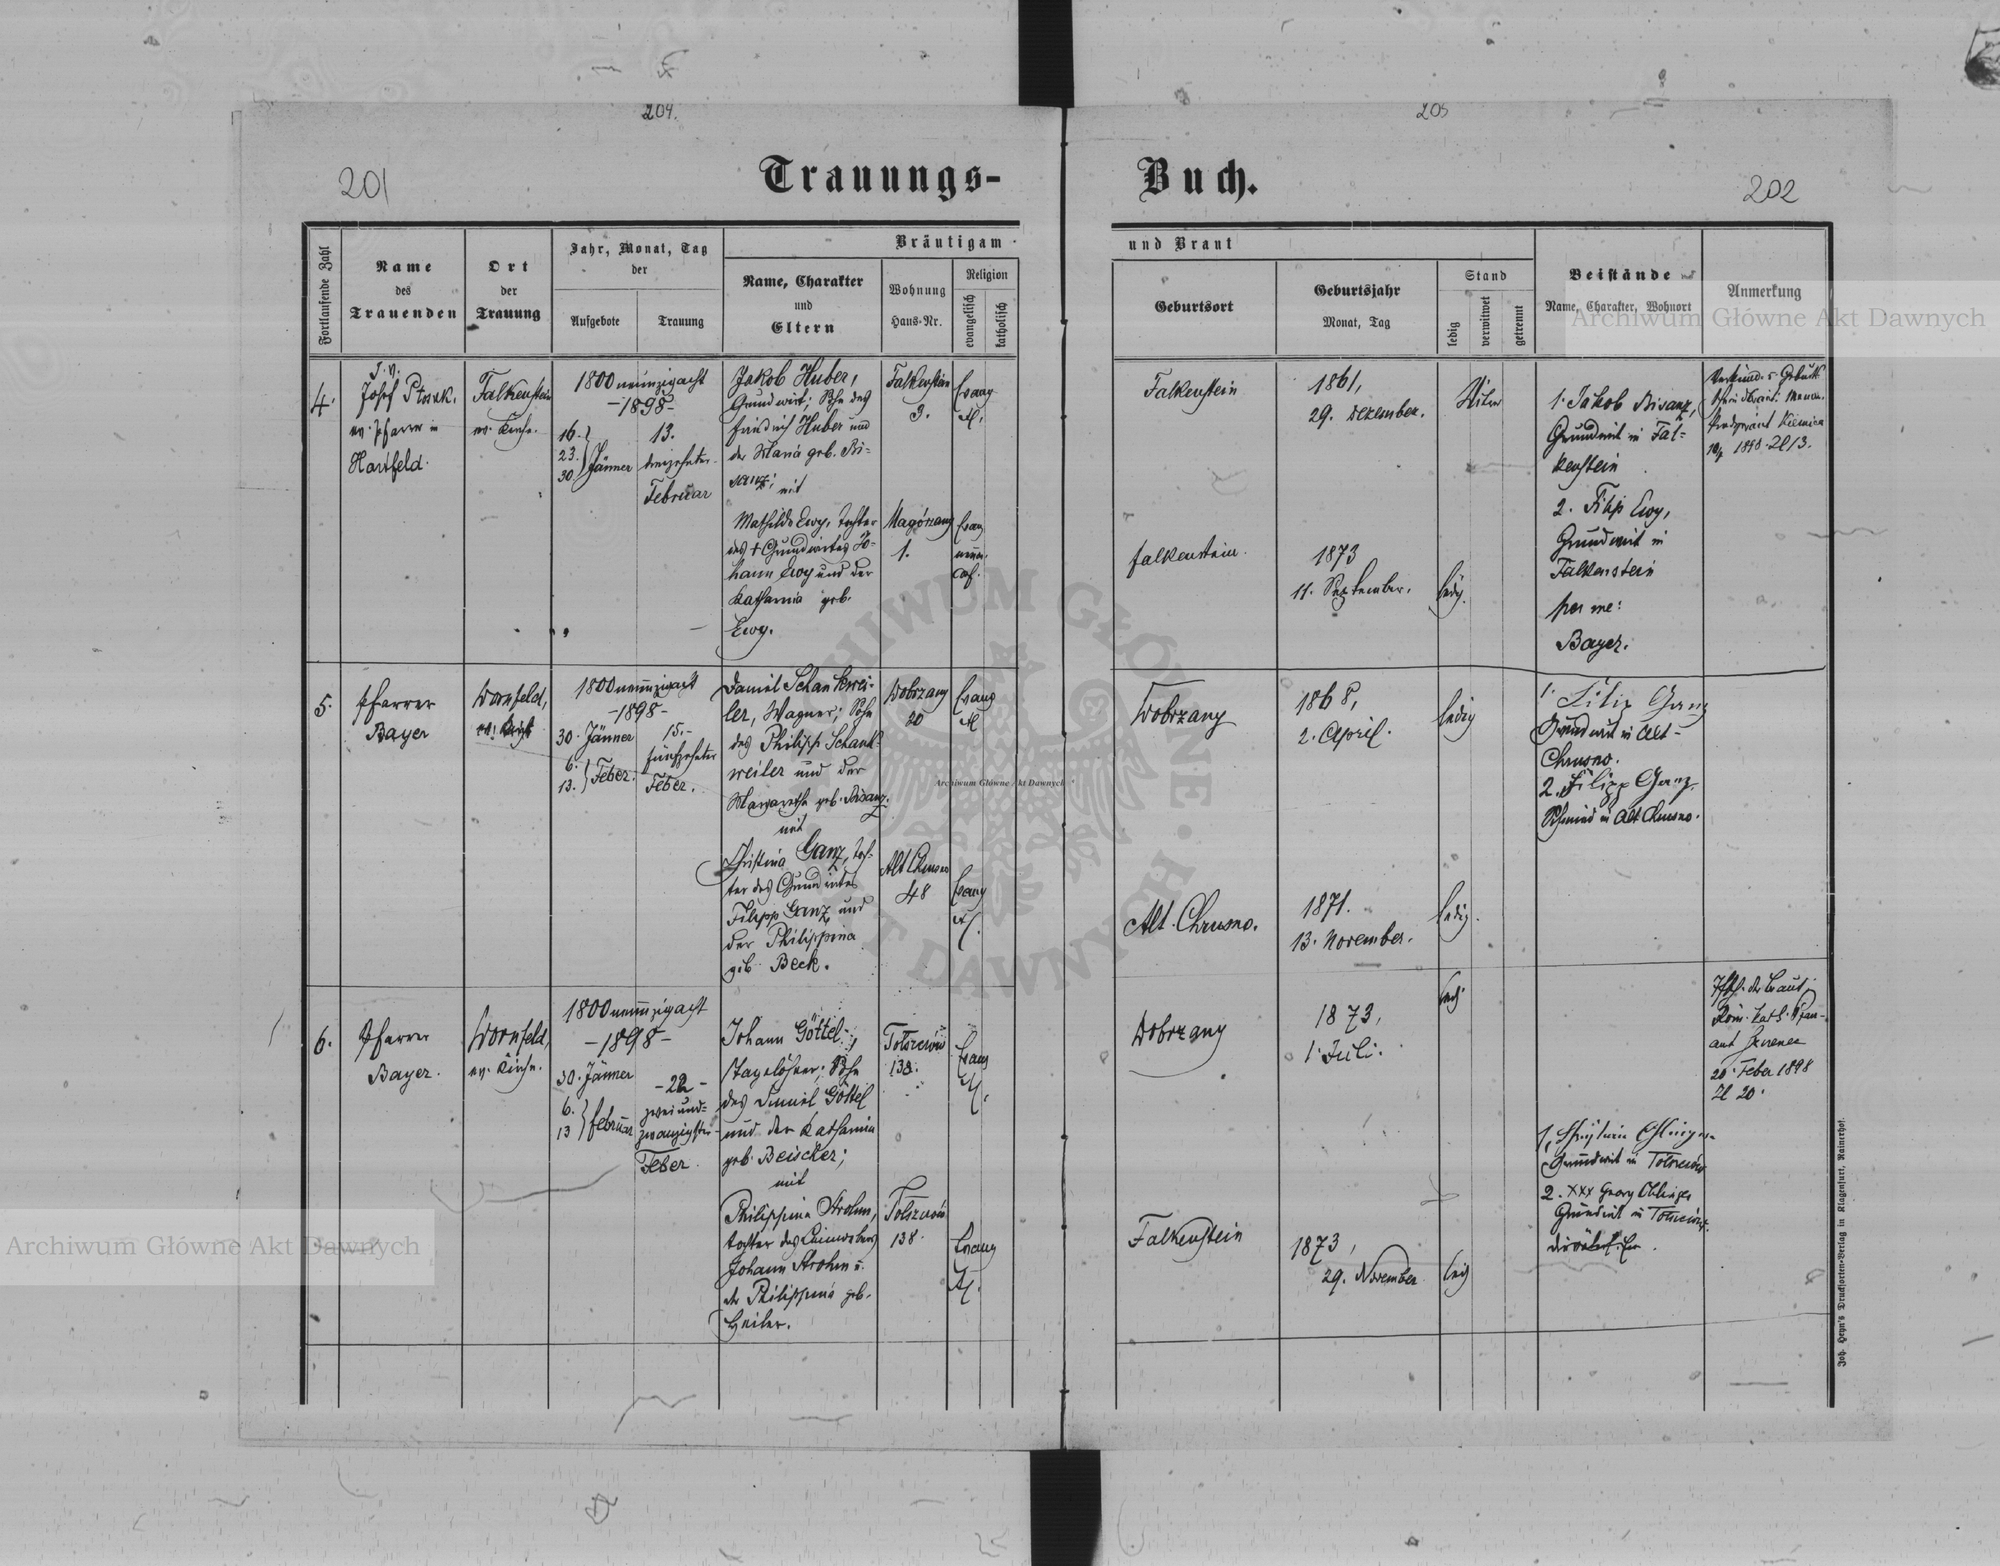 204.
205
201
202
Trauungs-
Buch.
Fortlaufende Zahl
Name
des
Trauenden
Ort
der
Trauung
Jahr, Monat, Tag
der
Aufgebote
Trauung
Bräutigam
Name, Charakter
und
Eltern
Wohnung
Haus-Nr.
Religion
evangelisch
katholisch
und Braut
Geburtsort
Geburtsjahr
Monat, Tag
Stand
ledig
verwitwet
getrennt
Beistände
Name, Charakter, Wohnort
Anmerkung
4.
Josef
ev. Pfarrer in
Hartfeld.
Falkenstein
ev. Kirche.
1800 neunzigacht
-1898-
16.
23.
30. Jänner
13.
dreizehnter
Februar
Jakob Huber,
Grundwirt; Sohn des
Friedrich Huber und
der Maria geb. Bi-
sanz;
mit
Mathilde Ewy, Tochter
des + Grundwirtes Jo-
hann Ewy und der
Katharina geb.
Ewy.
Falkenstein
3.
Evang
Falkenstein
1861,
29. Dezember.
1.
Evang
Falkenstein.
1873
11. September.
ledig.
1. Jakob Bisanz,
Grundwirt in Fal-
kenstein
2. Filip Ewy,
Grundwirt in
Falkenstein
per me:
Bayer.
1898 Zl 13.
5.
Pfarrer
Bayer
Dornfeld,
ev.
1800 neunzigacht
-1898-
30. Jänner
6.
13. Feber.
15.-
fünfzehnter
Feber.
Daniel Schankwei-
ler, Wagner; Sohn
des Philipp Schank-
weiler und der
Margaretha geb. Bisanz.
mit
Christina Ganz, Toch-
ter des Grundwirtes
Filipp Ganz und
der Philippina
geb. Beck.
Dobrzany
20
Evang
Dobrzany
1868,
2. April.
ledig
Alt Chrusno
48
Evang
Alt-Chrusno.
1871.
13. November.
ledig.
1. Filip Ganz
Grundwirt in Alt-
Chrusno.
2. Filipp Ganz
Schmied in Alt Chrusno.
6.
Pfarrer
Bayer.
Dornfeld,
ev. Kirche.
1800 neunzigacht
-1898-
30. Jänner
6.
13 Februar
-22-
zweiund-
zwanzigster
Feber
Johann Göttel,
Tagelöhner; Sohn
des Daniel Göttel
und der Katharina
geb. Beischer;
mit
Philippina Strohm,
Tochter des
Johann Strohm u.
der Philippina geb.
Heiler.
Tolszczów
138.
Evang
Dobrzany
1873,
1. Juli.
ledig
Tolszczów
138.
Evang
Falkenstein
1873,
29. November
ledig
Röm. kath. Pfarr-
amt
20. Feber 1898
Zl 20.
1.
Grundwirt in Tolszczów
2. xxx Georg
Grundwirt in Tolszczów.
Joh. Heyn's Drucksorten-Verlag in Klagenfurt, Rainerhof.
Archiwum Główne Akt Dawnych
Archiwum Główne Akt Dawnych
Archiwum Główne Akt Dawnych
ARCHIWUM GŁÓWNE AKT DAWNYCH